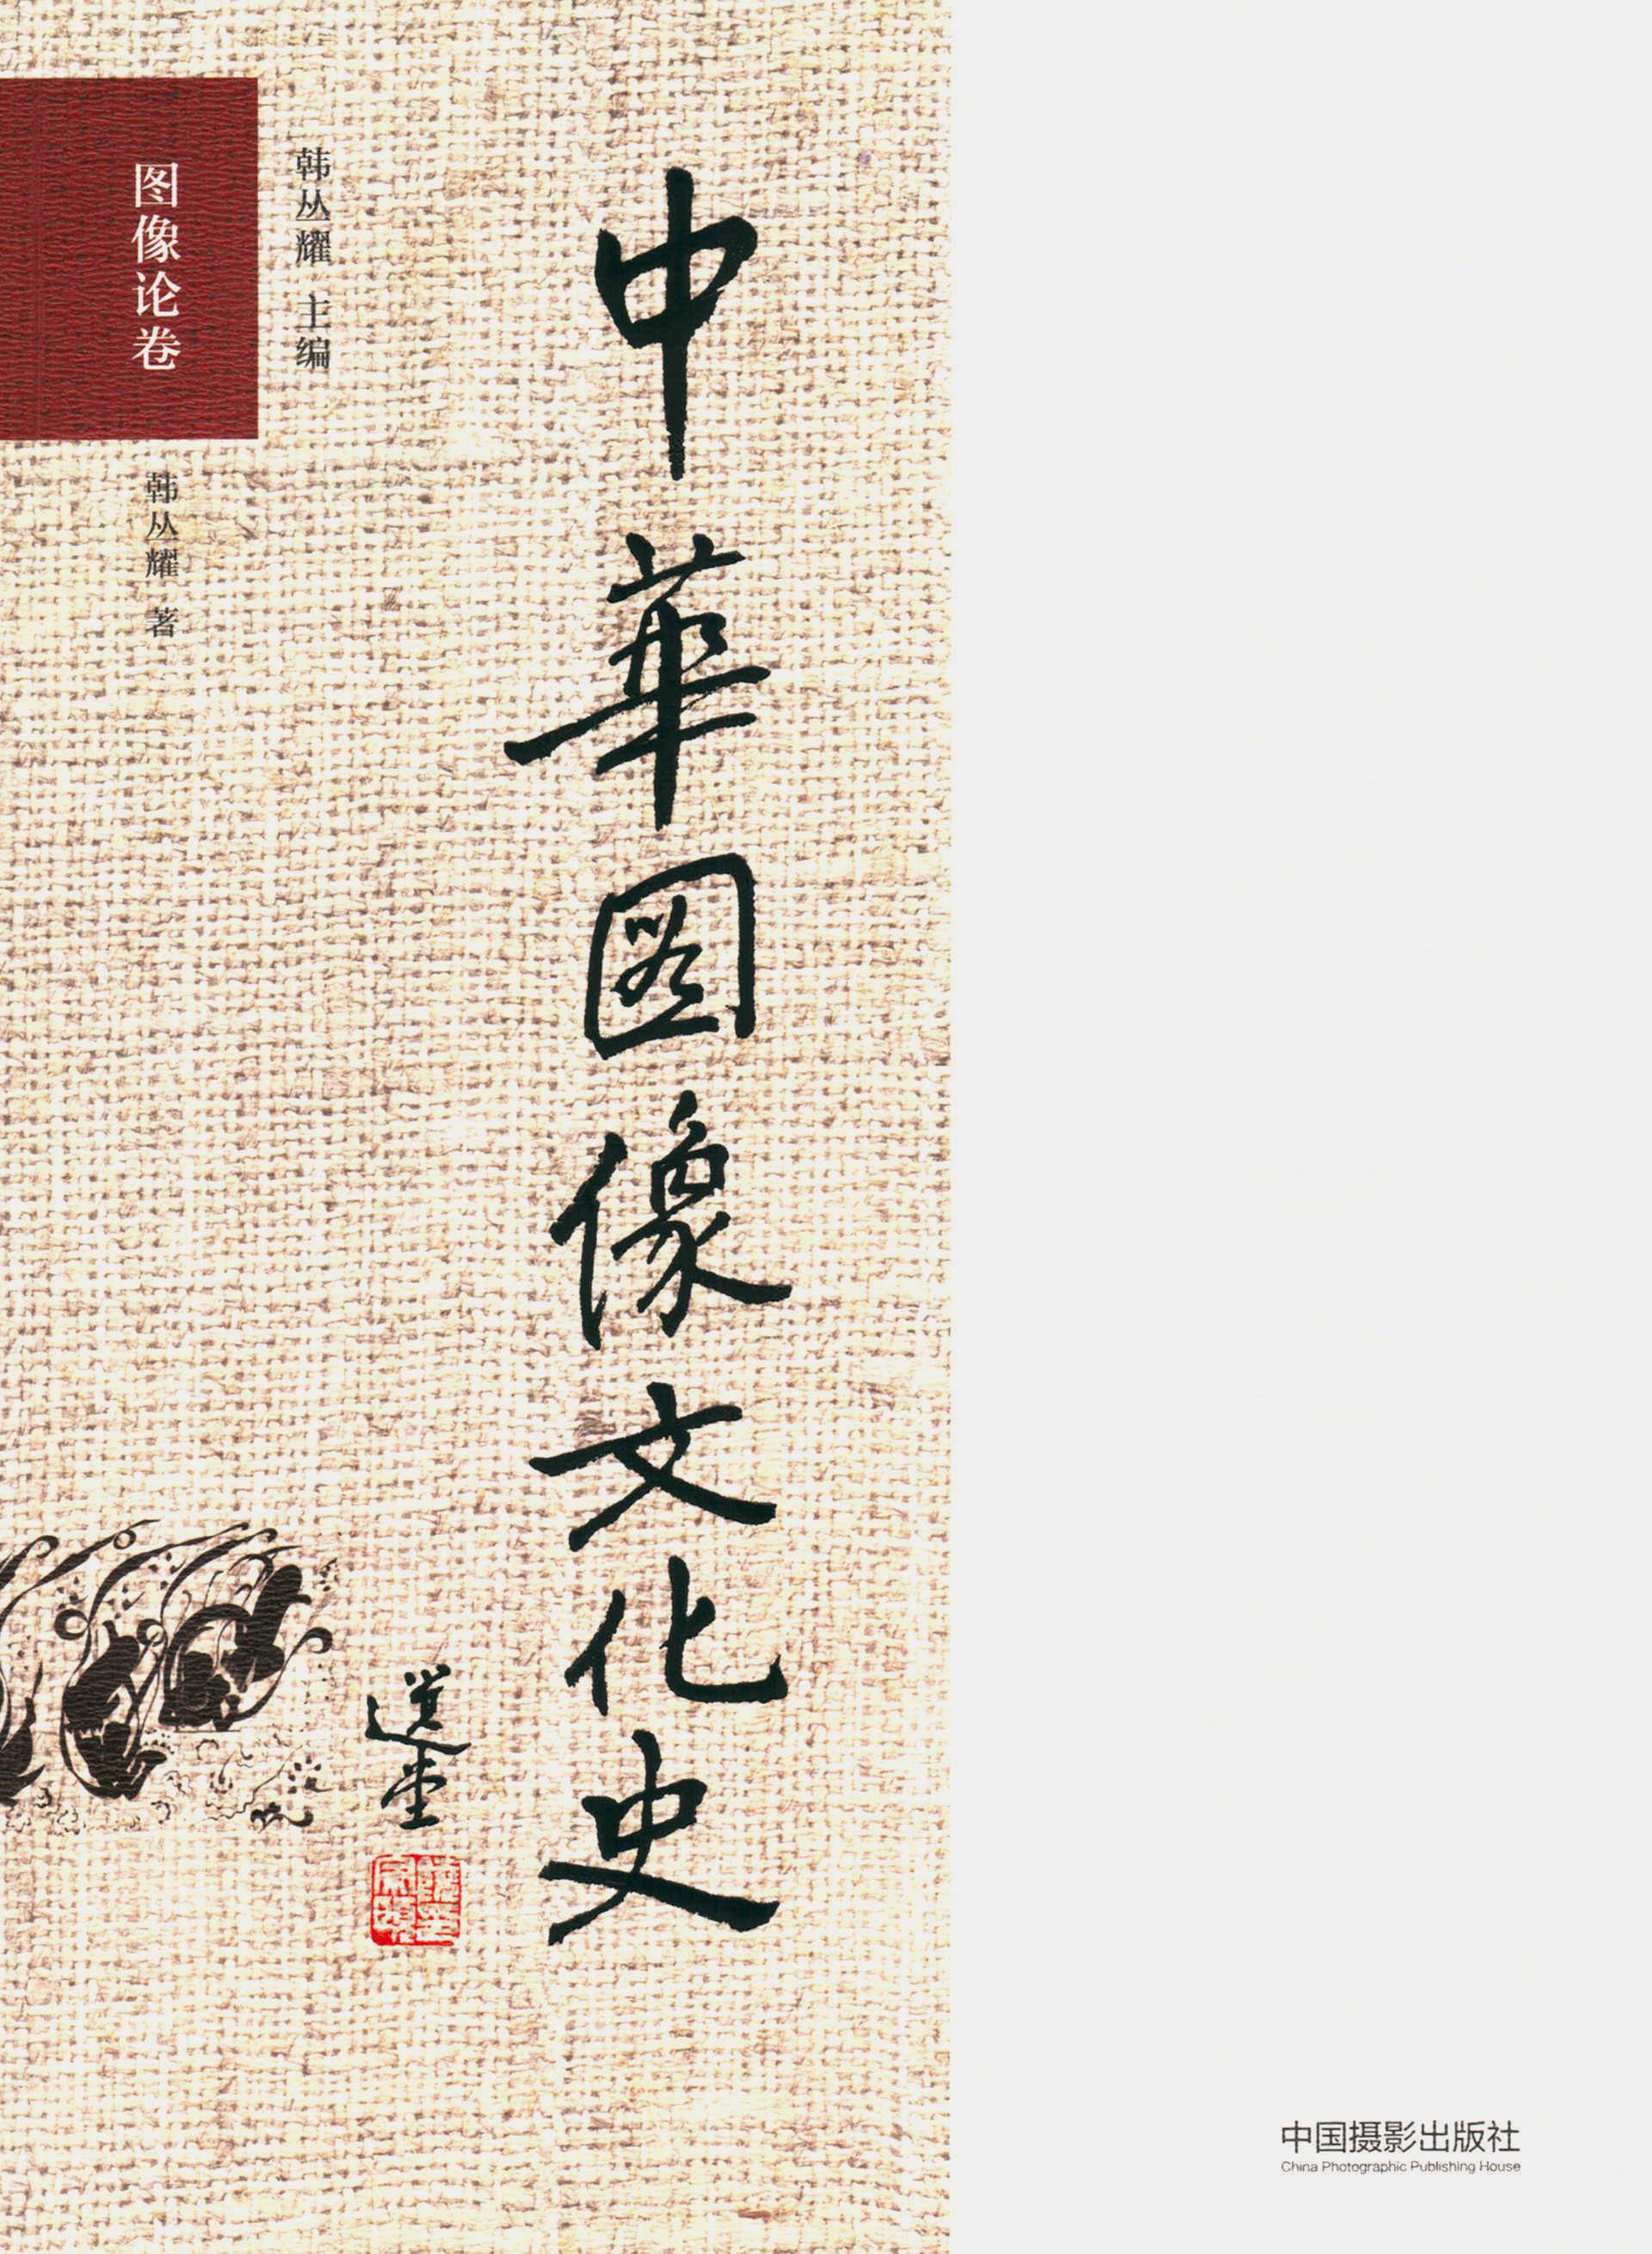 中華图像文化史
選堂
韩丛耀 主编
图像论卷
韩丛耀 著
中国摄影出版社
China Photographic Publishing House